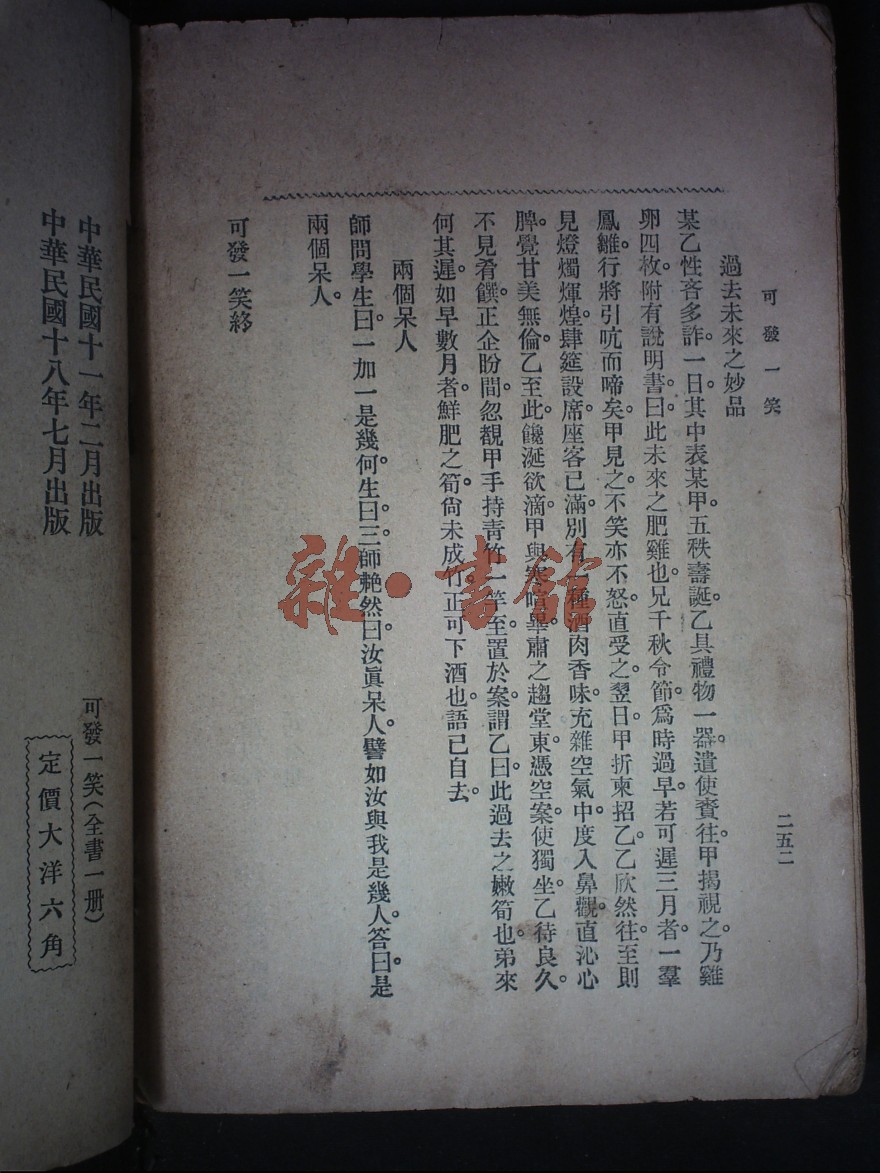 可發一笑
二五二
過去未來之妙品
某乙性吝多詐。一日。其中表某甲。五秩壽誕。乙具禮物一器。遣使賚往。甲揭視之。乃雞
卵四枚。附有說明書。曰。此未來之肥雞也。兄千秋令節。爲時過早。若可遲三月者。一羣
鳳雛。行將引吭而啼矣。甲見之。不笑亦不怒。直受之。翌日。甲折柬招乙。乙欣然往。至則
見燈燭煇煌。肆筵設席。座客已滿。別有一種酒肉香味。充雜空氣中。度入鼻觀。直沁心
脾。覺甘美無倫。乙至此。饞涎欲滴。甲與寒暄畢。肅之趨堂東。憑空案。使獨坐。乙待良久。
不見肴饌。正企盼間。忽覩甲手持青竹一竿至。置於案。謂乙曰。此過去之嫩筍也。弟來
何其遲。如早數月者。鮮肥之筍。尙未成竹。正可下酒也。語已自去。
兩個呆人
師問學生曰。一加一是幾何。生曰。三。師赩然曰。汝眞呆人。譬如汝與我是幾人。答曰。是
兩個呆人。
可發一笑終
中華民國十一年二月出版
中華民國十八年七月出版
可發一笑（全書一册）
定價大洋六角
雜·書館